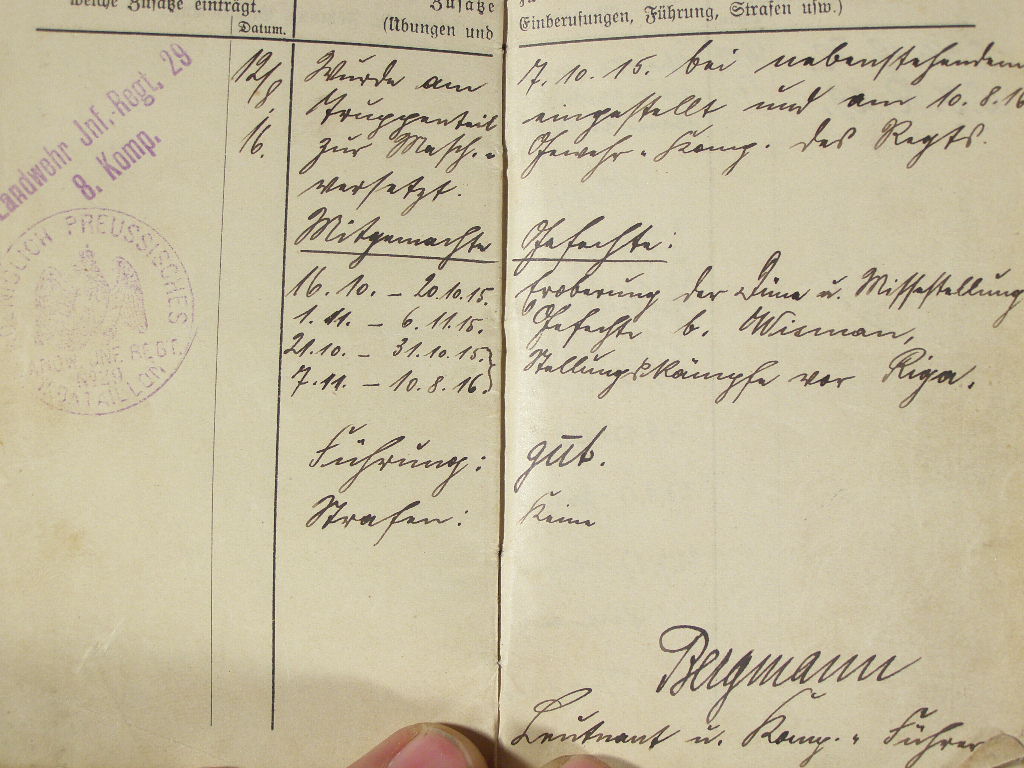 welche Zusätze einträgt.
Datum.
Zusätze
(Übungen und
Einberufungen, Führung, Strafen usw.)
Landwehr Inf.-Regt. 29
8. Komp.
KOENIGLICH PREUSSISCHES
LANDW. INF. REGT.
No 29
BATAILLON
12/8. 16.
Wurde am 7. 10. 15. bei nebenstehendem
Truppenteil eingestellt und am 10. 8. 16
zur Masch.- Gewehr-Komp. des Regts.
versetzt.
Mitgemachte Gefechte:
16. 10. – 20.10.15. Eroberung der Düna u. Missestellung
1. 11. – 6. 11. 15. Gefechte b.
21.10. – 31.10.15. Stellungskämpfe vor Riga.
7. 11. – 10. 8. 16
Führung: gut.
Strafen: Keine
Bergmann
Leutnant u. Komp.-Führer